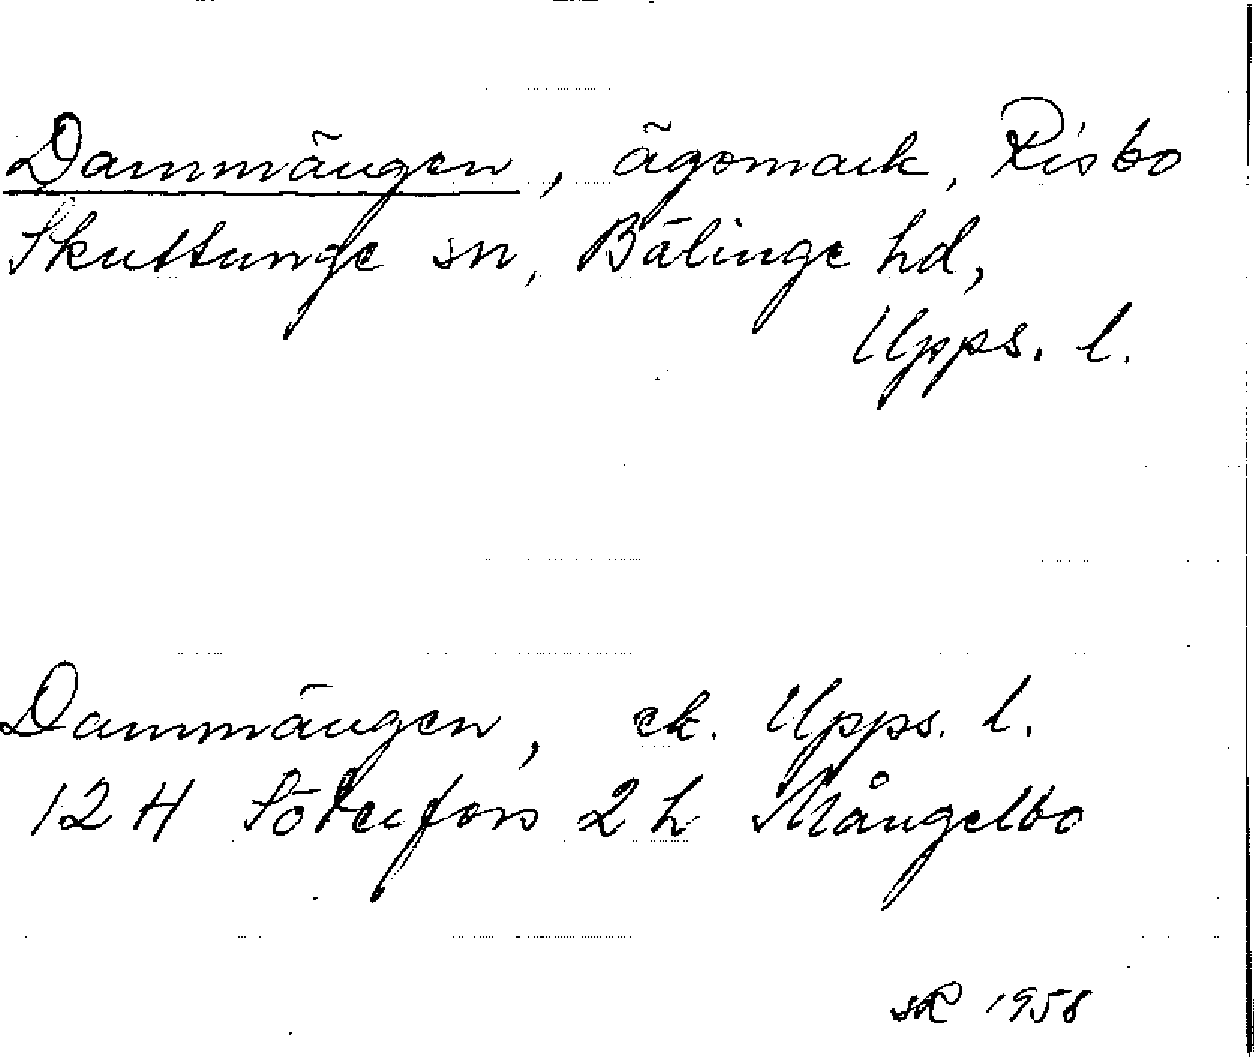 Dammängen, ägomark, Risbo
Skuttunge sn, Bälinge hd,
Upps. l.
Dammängen, ek. Upps. l.
12 H Söderfors 2 h Mångelbo
sR 1958